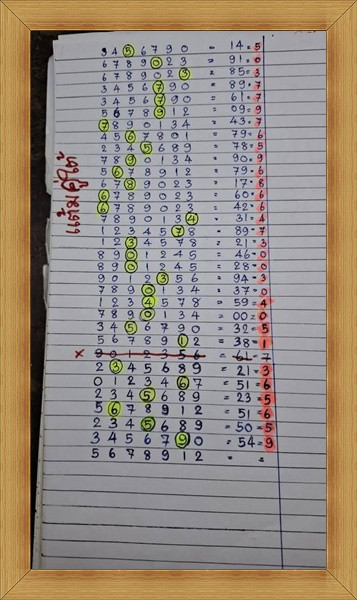 แต้มคู่ใต้
3 4 5 6 7 9 0 = 14=5
6 7 8 9 0 2 3 = 91=0
6 7 8 9 0 2 3 = 85=3
3 4 5 6 7 9 0 = 89=7
3 4 5 6 7 9 0 = 61=7
5 6 7 8 9 1 2 = 09=9
7 8 9 0 1 3 4 = 43=7
4 5 6 7 8 0 1 = 79=6
2 3 4 5 6 8 9 = 78=5
7 8 9 0 1 3 4 = 90=9
5 6 7 8 9 1 2 = 79=6
6 7 8 9 0 2 3 = 17=8
6 7 8 9 0 2 3 = 60=6
6 7 8 9 0 2 3 = 42=6
7 8 9 0 1 3 4 = 31=4
1 2 3 4 5 7 8 = 89=7
1 2 3 4 5 7 8 = 21=3
8 9 0 1 2 4 5 = 46=0
8 9 0 1 2 4 5 = 28=0
9 0 1 2 3 5 6 = 94=3
7 8 9 0 1 3 4 = 37=0
1 2 3 4 5 7 8 = 59=4
7 8 9 0 1 3 4 = 00=0
3 4 5 6 7 9 0 = 32=5
5 6 7 8 9 1 2 = 38=1
x 9 0 1 2 3 5 6 = 61=7
2 3 4 5 6 8 9 = 21=3
0 1 2 3 4 6 7 = 51=6
2 3 4 5 6 8 9 = 23=5
5 6 7 8 9 1 2 = 51=6
2 3 4 5 6 8 9 = 50=5
3 4 5 6 7 9 0 = 54=9
5 6 7 8 9 1 2 = =